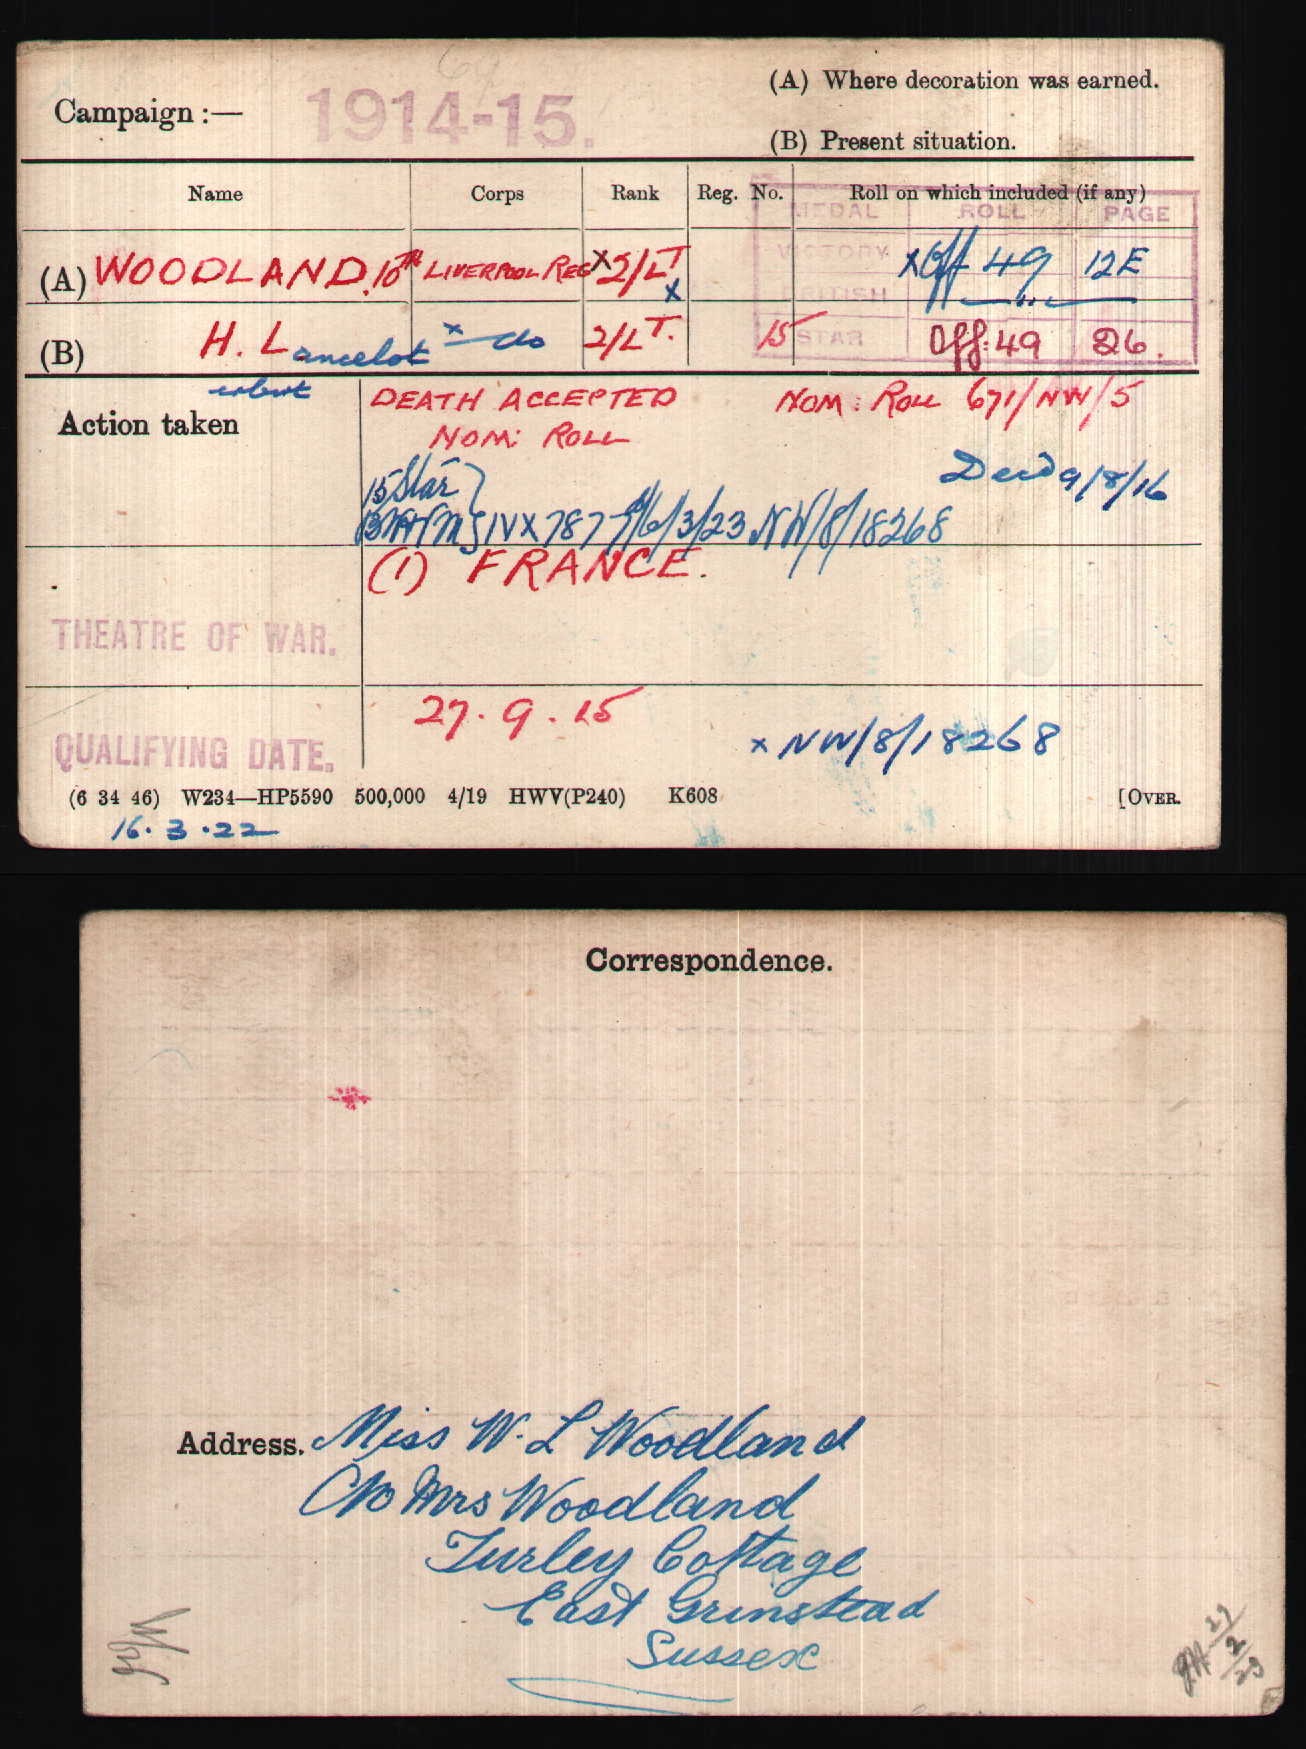 Campaign :— 1914-15.
(A) Where decoration was earned.
(B) Present situation.
Name Corps Rank Reg. No. Roll on which included (if any)
MEDAL ROLL PAGE
(A) WOODLAND. 10TH LIVERPOOL REG X 2/LT VICTORY X Off 49 12E
X BRITISH — " —
(B) H. Lancelot x — do 2/LT. 15 STAR Off. 49 26.
erbert
Action taken
DEATH ACCEPTED NOM: ROLL 671/NW/5
NOM: ROLL
15 Star } Decd 9/8/16
BW & VM } IVX 787 6/3/23 NW/8/18268
(1) FRANCE.
THEATRE OF WAR.
27.9.15
QUALIFYING DATE. x NW/8/18268
(6 34 46) W234—HP5590 500,000 4/19 HWV(P240) K608 [OVER.
16.3.22
Correspondence.
Address. Miss W. L Woodland
C/o Mrs Woodland
Turley Cottage
East Grinstead
Sussex